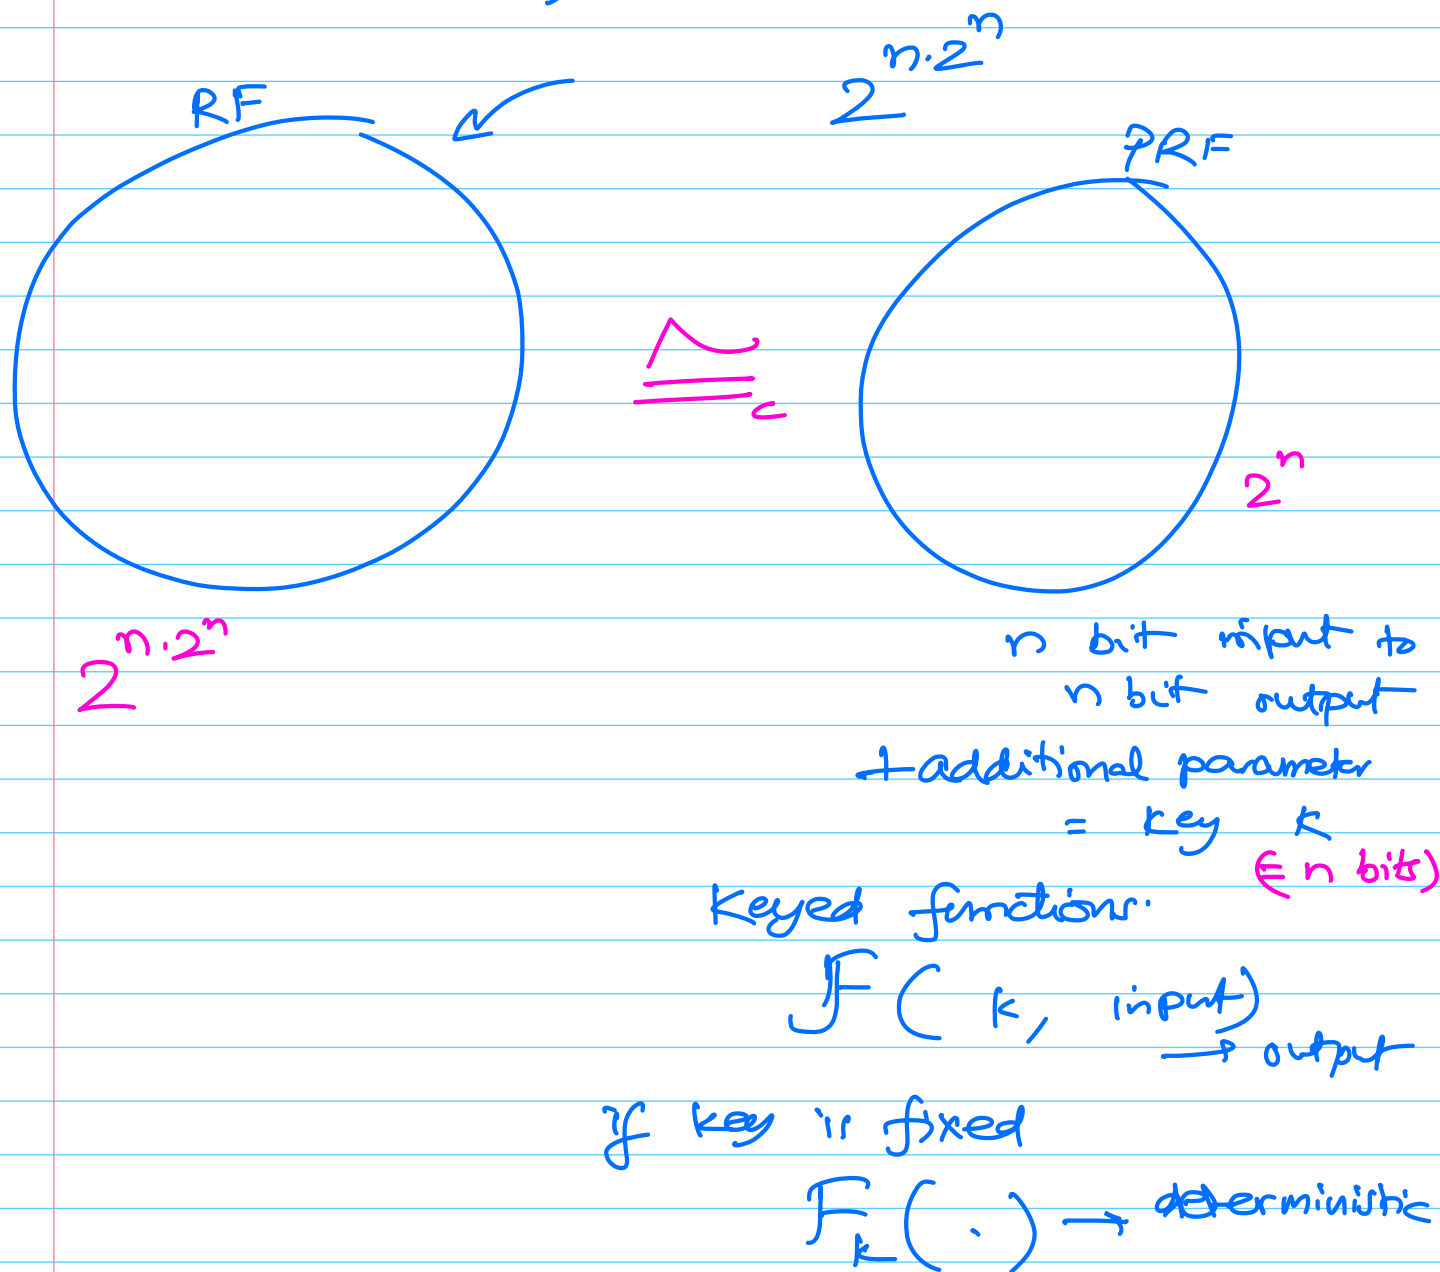 2^{n·2^n}
RF
PRF
≅_c
2^n
2^{n·2^n}
n bit input to
n bit output
+ additional parameter
= key k
(∈ n bits)
Keyed functions.
F( k, input)
→ output
if key is fixed
F_k(·) → deterministic